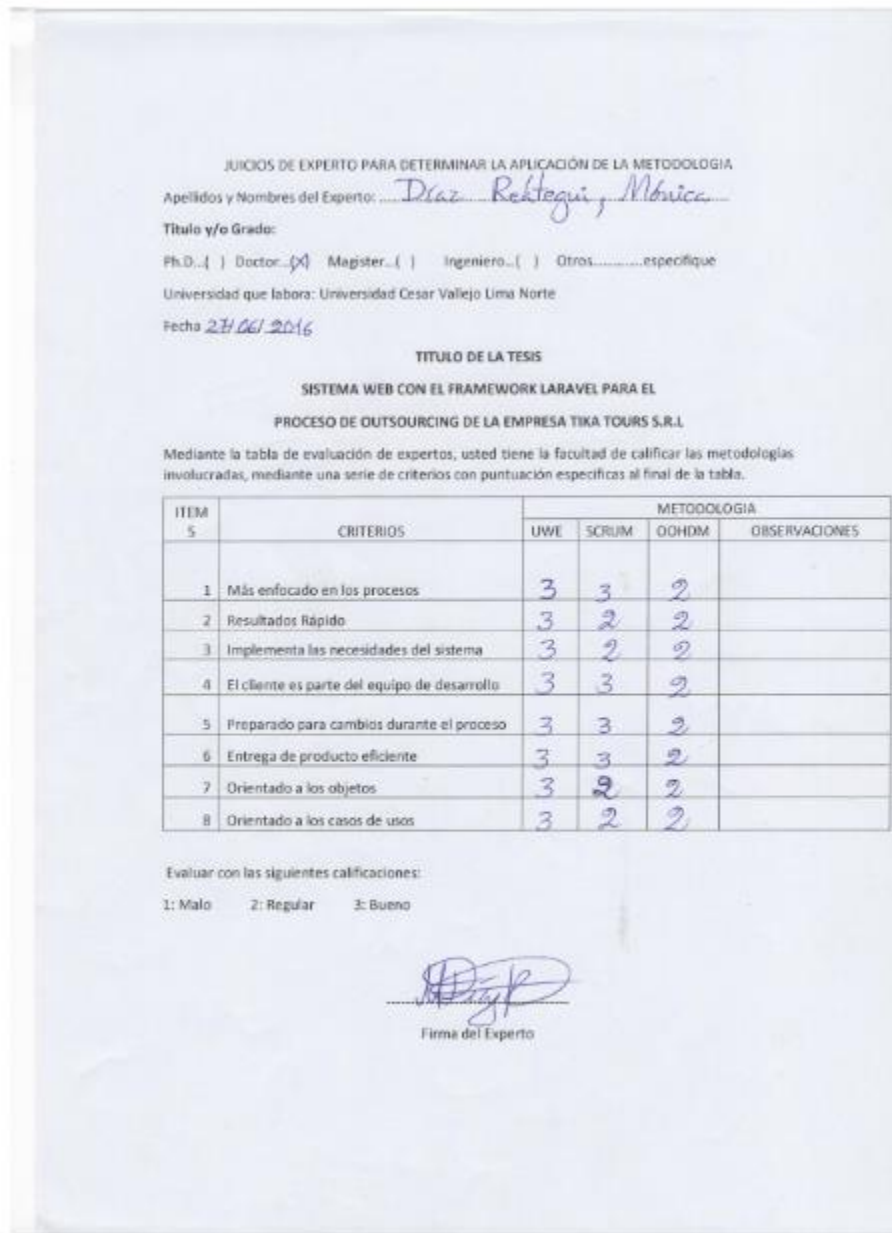 JUICIOS DE EXPERTO PARA DETERMINAR LA APLICACIÓN DE LA METODOLOGIA
Apellidos y Nombres del Experto: Díaz Reátegui, Mónica
Titulo y/o Grado:
Ph.D...( ) Doctor...(X) Magister...( ) Ingeniero...( ) Otros............especifique
Universidad que labora: Universidad Cesar Vallejo Lima Norte
Fecha 27/06/2016
TITULO DE LA TESIS
SISTEMA WEB CON EL FRAMEWORK LARAVEL PARA EL
PROCESO DE OUTSOURCING DE LA EMPRESA TIKA TOURS S.R.L
Mediante la tabla de evaluación de expertos, usted tiene la facultad de calificar las metodologías
involucradas, mediante una serie de criterios con puntuación especificas al final de la tabla.
ITEM S CRITERIOS METODOLOGIA
UWE SCRUM OOHDM OBSERVACIONES
1 Más enfocado en los procesos 3 3 2
2 Resultados Rápido 3 2 2
3 Implementa las necesidades del sistema 3 2 2
4 El cliente es parte del equipo de desarrollo 3 3 2
5 Preparado para cambios durante el proceso 3 3 2
6 Entrega de producto eficiente 3 3 2
7 Orientado a los objetos 3 2 2
8 Orientado a los casos de usos 3 2 2
Evaluar con las siguientes calificaciones:
1: Malo 2: Regular 3: Bueno
Firma del Experto